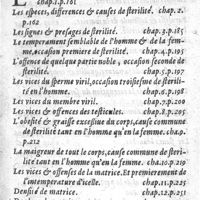 chap.1.p.161
Les especes, differences & causes de sterilité. chap.2.
p.162
Les signes & presages de sterilité. chap.3.p.185
Le temperament semblable de l'homme & de la femme, occasion premiere de sterilité. chap.4.p.191
L'offence de quelque partie noble, occasion seconde de sterilité. chap.5.p.197
Les vices du sperme viril, occasion troisiesme de sterilité en l'homme. chap.6.p.198
Les vices du membre viril. chap.7.p.209
Les vices & offences des testicules. chap.8.p.205
L'obesité & graisse excessiue du corps, cause commune de sterilité tant en l'homme qu'en la femme. cha.9.
p.212
La maigreur de tout le corps, cause commune de sterilité tant en l'homme qu'en la femme. cha.10.p.219
Les vices & offenses de la matrice. Et premierement de l'intemperature d'icelle. chap.11.p.225
Densité de matrice. chap.12.p.231